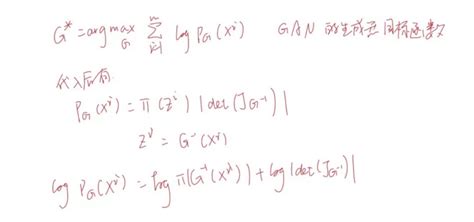 G* = arg max_G Σ_{i=1}^{n} log P_G(x^i) GAN 的生成器目标函数
代入后有
P_G(x^i) = π(z^i) |det(J_{G^{-1}})|
z^i = G^{-1}(x^i)
log P_G(x^i) = log π(G^{-1}(x^i)) + log |det(J_{G^{-1}})|